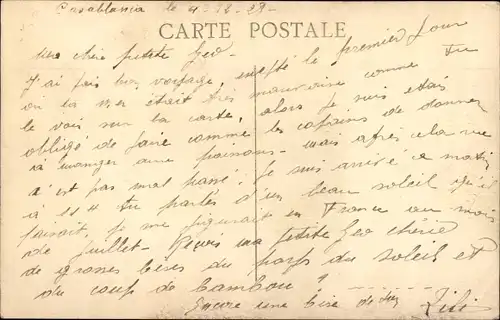 Casablanca le 4-12-29-
CARTE POSTALE
Ma chère petite Geo-
J'ai fais bon voyage, excepté le premier jour
ou la mer était très mauvaise comme tu
le vois sur la carte, alors je suis etais
obligé de faire comme les copains de donner
à manger aux poissons- mais après cela ne
c'est pas mal passé. Je suis arrivé ce matin
à 11 " tu parles d'un beau soleil qu'il
faisait, je me figurait en France au mois
de Juillet- Reçois ma petite Geo chérie
de grosses bises du pays du soleil et
du coup de bambou !
Encore une bise de ton Lili